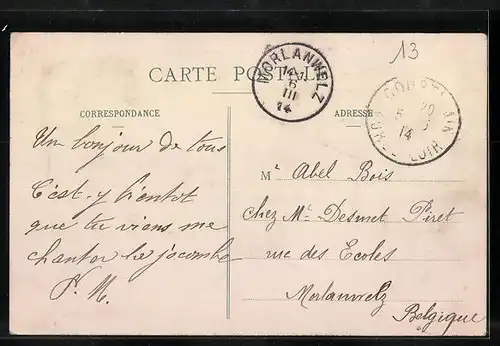 13
CARTE POSTALE
MORLANWELZ
14
6
III
14
CORRESPONDANCE
ADRESSE
EURE-&-LOIR
5
20
14
Un bonjour de tous
C'est-y bientot
que tu viens me
chanter
P. M.
Mr Abel Bois
chez Mr Desmet Piret
rue des Ecoles
Morlanwelz
Belgique